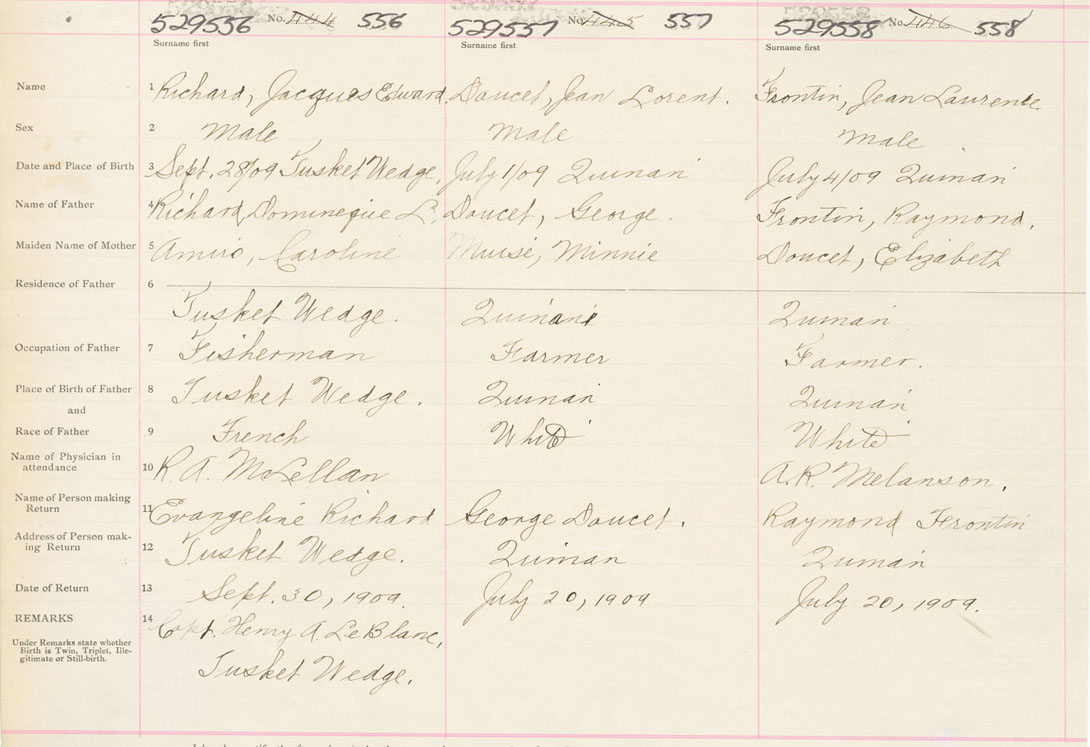 529556 No. 444 556 529557 No. 445 557 529558 No. 446 558
Surname first Surname first Surname first
Name 1 Richard, Jacques Edward. Doucet, Jean Lorent. Frontin, Jean Laurence
Sex 2 Male Male Male
Date and Place of Birth 3 Sept. 28/09 Tusket Wedge, July 1/09 Quinan July 4/09 Quinan
Name of Father 4 Richard, Domineque L. Doucet, George. Frontin, Raymond.
Maiden Name of Mother 5 Amiro, Caroline Muise, Minnie Doucet, Elizabeth
Residence of Father 6
Tusket Wedge. Quinan Quinan
Occupation of Father 7 Fisherman Farmer Farmer.
Place of Birth of Father 8 Tusket Wedge. Quinan Quinan
and
Race of Father 9 French White White
Name of Physician in
attendance 10 R. A. McLellan A. R. Melanson.
Name of Person making
Return 11 Evangeline Richard George Doucet. Raymond Frontin
Address of Person mak-
ing Return 12 Tusket Wedge. Quinan Quinan
Date of Return 13 Sept. 30, 1909. July 20, 1909 July 20, 1909.
REMARKS 14 Capt. Henry A. LeBlanc,
Under Remarks state whether
Birth is Twin, Triplet, Ille-
gitimate or Still-birth.
Tusket Wedge.